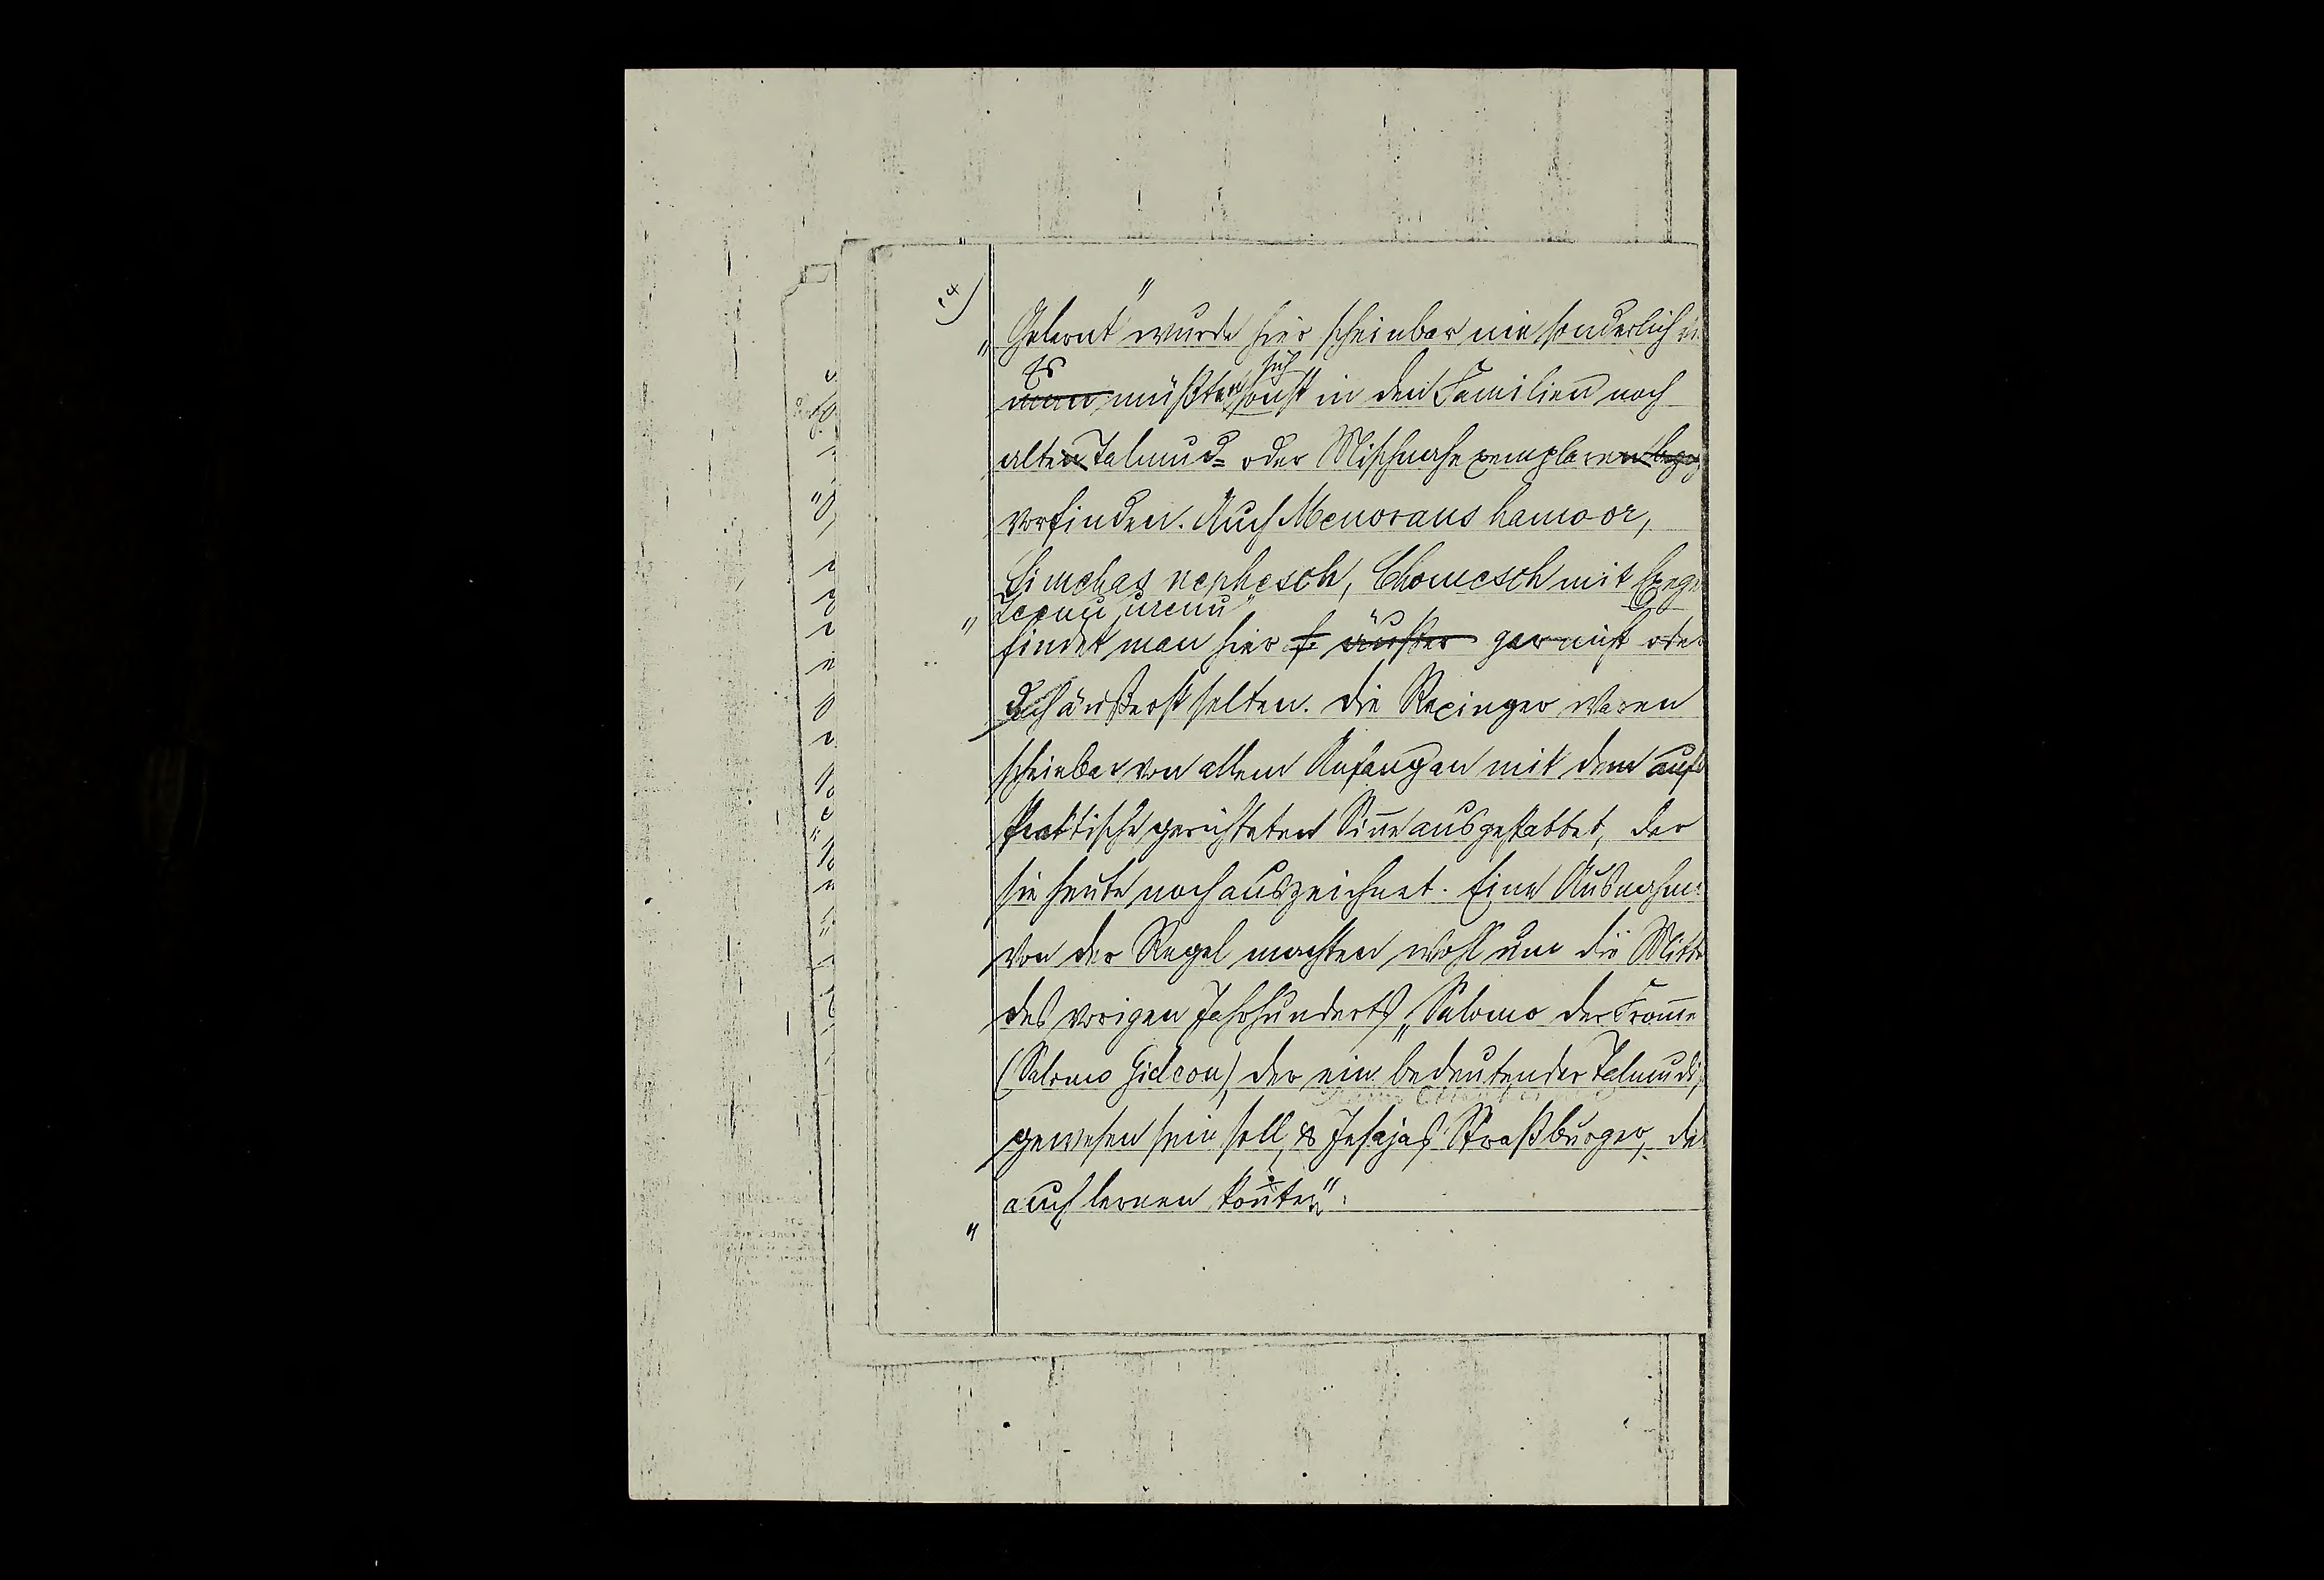 „Gelernt" wurde hier scheinbar nie sonderlich
Es
man müßten sich sonst in den Familien noch
alten Talmud= oder Mischnahexemplaren
vorfinden. Auch Menoraus hamoor,
Simchas nephesch, Chomesch mit Exege
„Zeenu urenu"
findet man hier f. äußer gar nicht oder
doch äußerst selten. Die Rexinger waren
scheinbar von allem Anfang an mit dem aufs
Praktische gerichteten Sinn ausgestattet, der
sie heute noch auszeichnet. Eine Ausnahme
von der Regel machten wohl um die Mitte
des vorigen Jahrhunderts „Salomo der Fromme
(Salomo Gideon), der ein bedeutender Talmudi
gewesen sein soll, & Jesajas Straßburger, der
auch „lernen konnte".